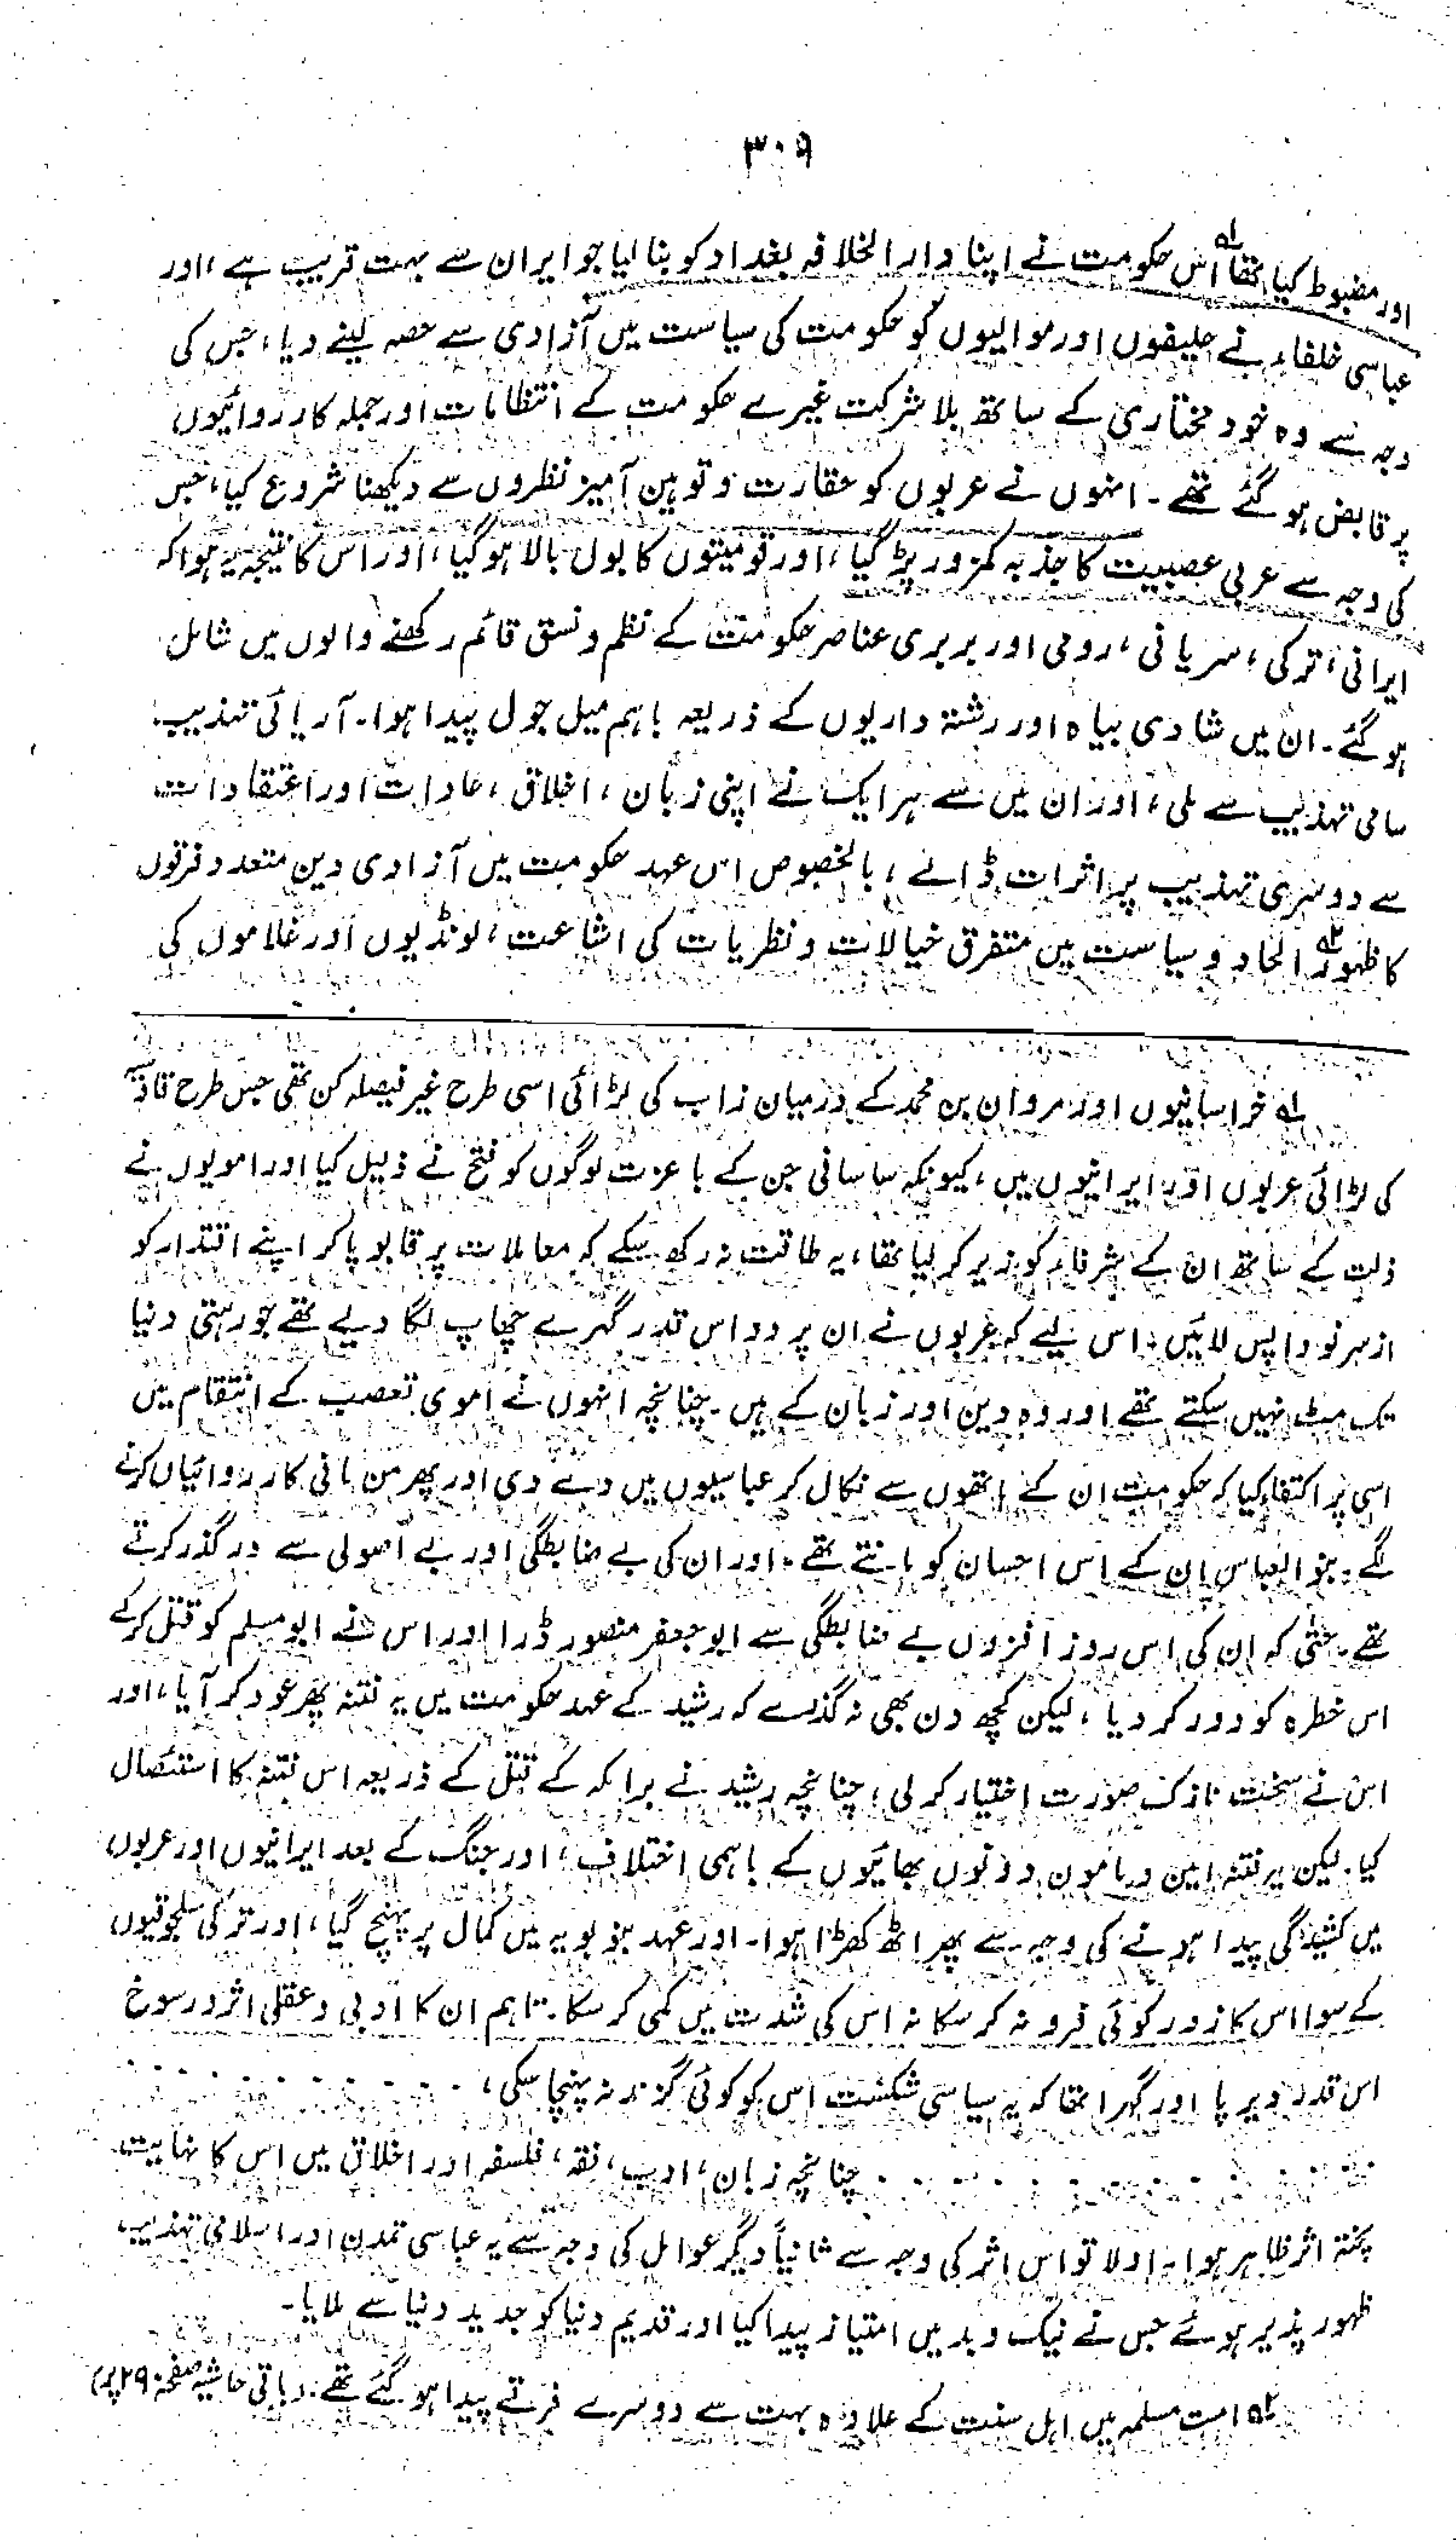 ۳۰۹
اور مضبوط کیا تھا۱ اس حکومت نے اپنا دار الخلافہ بغداد کو بنا لیا جو ایران سے بہت قریب ہے، اور
عباسی خلفاء نے حلیفوں اور موالیوں کو حکومت کی سیاست میں آزادی سے حصہ لینے دیا، جس کی
وجہ سے وہ خود مختاری کے ساتھ بلا شرکت غیرے حکومت کے انتظامات اور جملہ کارروائیوں
پر قابض ہو گئے تھے۔ انہوں نے عربوں کو حقارت و توہین آمیز نظروں سے دیکھنا شروع کیا، جس
کی وجہ سے عربی عصبیت کا جذبہ کمزور پڑ گیا، اور قومیتوں کا بول بالا ہو گیا، اور اس کا نتیجہ یہ ہوا کہ
ایرانی، ترکی، سریانی، رومی اور بربری عناصر حکومت کے نظم و نسق قائم رکھنے والوں میں شامل
ہو گئے۔ ان میں شادی بیاہ اور رشتہ داریوں کے ذریعہ باہم میل جول پیدا ہوا۔ آریائی تہذیب
سامی تہذیب سے ملی، اور ان میں سے ہر ایک نے اپنی زبان، اخلاق، عادات اور اعتقادات
سے دوسری تہذیب پر اثرات ڈالے، بالخصوص اس عہد حکومت میں آزادی دین متعدد فرقوں
کا ظہور۲ الحاد و سیاست میں متفرق خیالات و نظریات کی اشاعت، لونڈیوں اور غلاموں کی
۱ خراسانیوں اور مروان بن محمد کے درمیان زاب کی لڑائی اسی طرح غیر فیصلہ کن تھی جس طرح قادسیہ
کی لڑائی عربوں اور ایرانیوں میں، کیونکہ ساسانی جن کے با عزت لوگوں کو فتح نے ذلیل کیا اور امویوں نے
ذلت کے ساتھ ان کے شرفاء کو زیر کر لیا تھا، یہ طاقت نہ رکھ سکے کہ معاملات پر قابو پا کر اپنے اقتدار کو
از سر نو واپس لائیں، اس لیے کہ عربوں نے ان پر دو اس قدر گہرے چھاپ لگا دیے تھے جو رہتی دنیا
تک مٹ نہیں سکتے تھے اور وہ دین اور زبان کے ہیں۔ چنانچہ انہوں نے اموی تعصب کے انتقام میں
اسی پر اکتفاء کیا کہ حکومت ان کے ہاتھوں سے نکال کر عباسیوں میں دے دی اور پھر من مانی کارروائیاں کرنے
لگے۔ بنو العباس ان کے اس احسان کو مانتے تھے، اور ان کی بے ضابطگی اور بے اصولی سے درگذر کرتے
تھے۔ حتیٰ کہ ان کی اس روز افزوں بے ضابطگی سے ابو جعفر منصور ڈرا اور اس نے ابو مسلم کو قتل کر کے
اس خطرہ کو دور کر دیا، لیکن کچھ دن بھی نہ گذرے کہ رشید کے عہد حکومت میں یہ فتنہ پھر عود کر آیا، اور
اس نے سخت نازک صورت اختیار کر لی، چنانچہ رشید نے برامکہ کے قتل کے ذریعہ اس فتنہ کا استئصال
کیا۔ لیکن یہ فتنہ امین و مامون دونوں بھائیوں کے باہمی اختلاف، اور جنگ کے بعد ایرانیوں اور عربوں
میں کشیدگی پیدا ہونے کی وجہ سے پھر اٹھ کھڑا ہوا۔ اور عہد بنو بویہ میں کمال پر پہنچ گیا، اور ترکی سلجوقیوں
کے سوا اس کا زور کوئی فرو نہ کر سکا نہ اس کی شدت میں کمی کر سکا۔ تاہم ان کا ادبی و عقلی اثر و رسوخ
اس قدر دیرپا اور گہرا تھا کہ یہ سیاسی شکست اس کو کوئی گزند نہ پہنچا سکی، . . . . . . . . . . . .
. . . . . . . . . . . . چنانچہ زبان، ادب، فقہ، فلسفہ اور اخلاق میں اس کا نہایت
پختہ اثر ظاہر ہوا۔ اولا تو اس اثر کی وجہ سے ثانیاً دیگر عوامل کی وجہ سے یہ عباسی تمدن اور اسلامی تہذیب
ظہور پذیر ہوئے جس نے نیک و بد میں امتیاز پیدا کیا اور قدیم دنیا کو جدید دنیا سے ملایا۔
۲ امت مسلمہ میں اہل سنت کے علاوہ بہت سے دوسرے فرقے پیدا ہو گئے تھے۔ (باقی حاشیہ صفحہ پر)